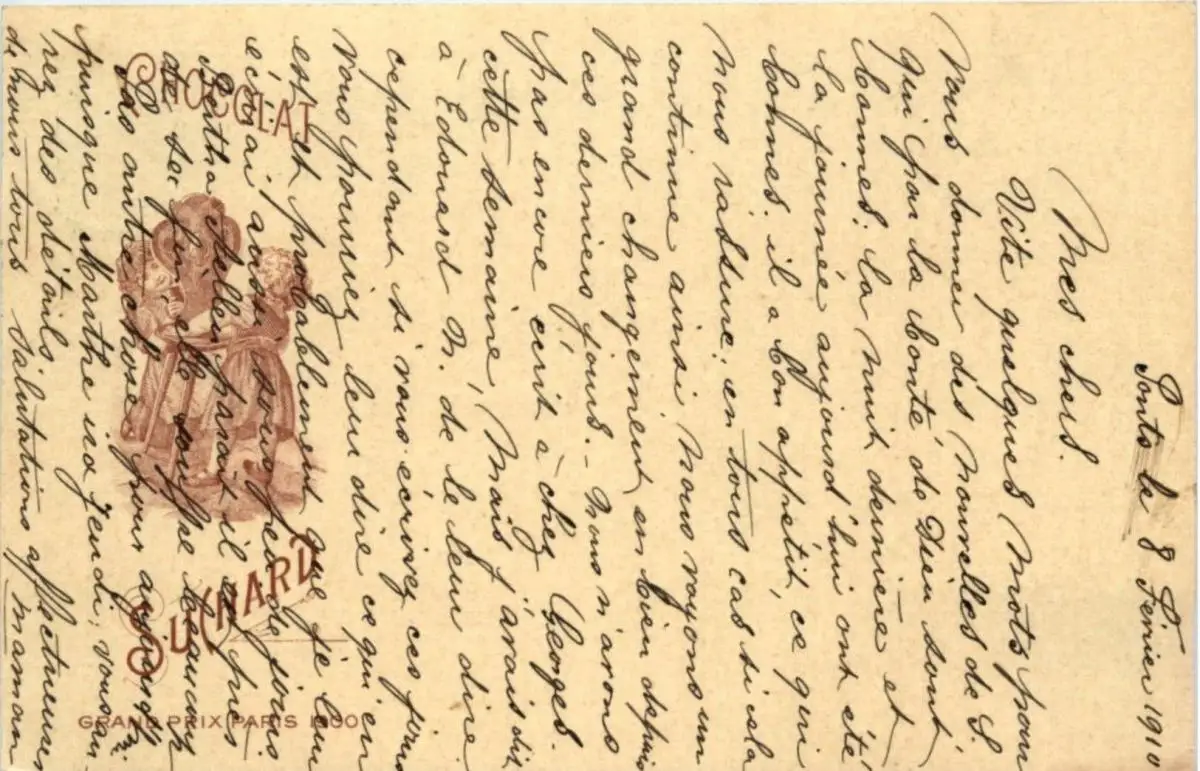 Ponts le 8 Février 1910
Mes chers.
Vite quelques mots pour
vous donner des nouvelles de S.
qui par la bonté de Dieu sont
bonnes. la nuit dernière et
la journée aujourd'hui ont été
bonnes. il a bon appétit, ce qui
nous rassure; en tous cas si cela
continue ainsi nous voyons un
grand changement en bien depuis
ces derniers jours. - Nous n'avons
pas encore écrit à chez Georges.
cette semaine, Mais j'avais dit
à Edouard N. de le leur dire
cependant si vous écrivez ces jours
vous pourriez leur dire ce qui en
est et probablement que je leur
écrirai aussi sous peu de jours
Bertha paraît il
de sa elle souffre beaucoup
pas autre chose pour
puisque Marthe ira Jeudi, vous au-
rez des détails.
de nous tous Salutations affectueuses
maman
CHOCOLAT
SUCHARD
GRAND PRIX PARIS 1900